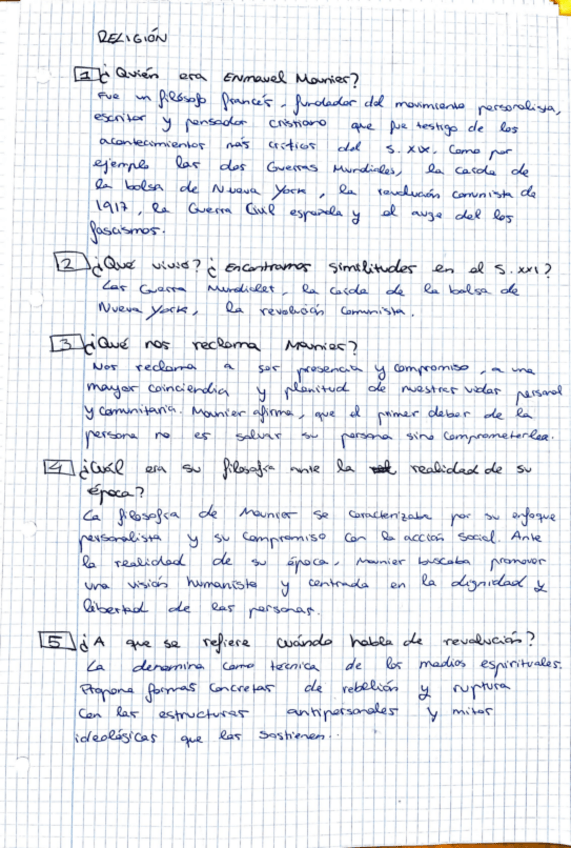 RELIGIÓN
1 ¿Quién era Enmanuel Mounier?
Fue un filósofo francés, fundador del movimiento personalista,
escritor y pensador cristiano que fue testigo de los
acontecimientos más críticos del s. XIX. Como por
ejemplo las dos Guerras Mundiales, la caída de
la bolsa de Nueva York, la revolución comunista de
1917, la Guerra Civil española y el auge del los
fascismos.
2 ¿Qué vivió? ¿Encontramos similitudes en el s. XXI?
Las Guerra Mundiales, la caída de la bolsa de
Nueva York, la revolución comunista.
3 ¿Qué nos reclama Mounier?
Nos reclama a ser presencia y compromiso, a una
mayor coinciendia y plenitud de nuestras vidas personal
y comunitaria. Mounier afirma, que el primer deber de la
persona no es salvar su persona sino comprometerlea.
4 ¿Cuál era su filosofía ante la realidad de su
época?
La filosofía de Mounier se caracterizaba por su enfoque
personalista y su compromiso con la acción social. Ante
la realidad de su época, Mounier buscaba promover
una visión humanista y centrada en la dignidad y
libertad de las personas.
5 ¿A que se refiere cuándo habla de revolución?
La denomina como técnica de los medios espirituales.
Propone formas concretas de rebelión y ruptura
con las estructuras antipersonales y mitos
ideológicas que las sostienen..